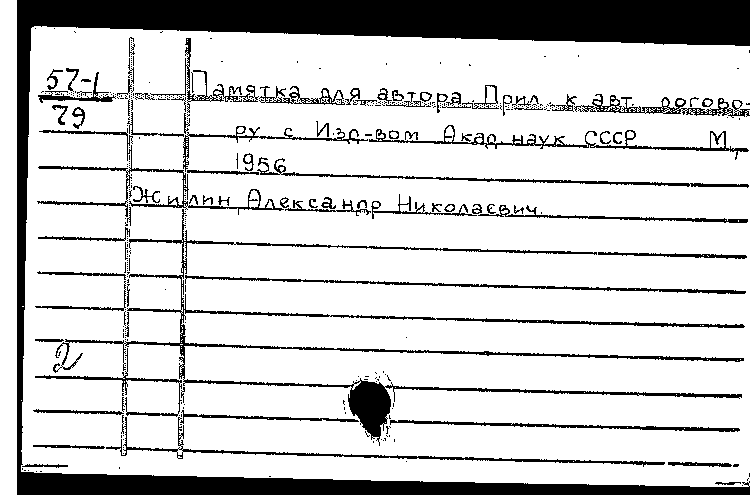 57-1
79
Памятка для автора. Прил. к авт. догово-
ру с Изд-вом Акад. наук СССР М.,
1956
Жилин, Александр Николаевич.
2